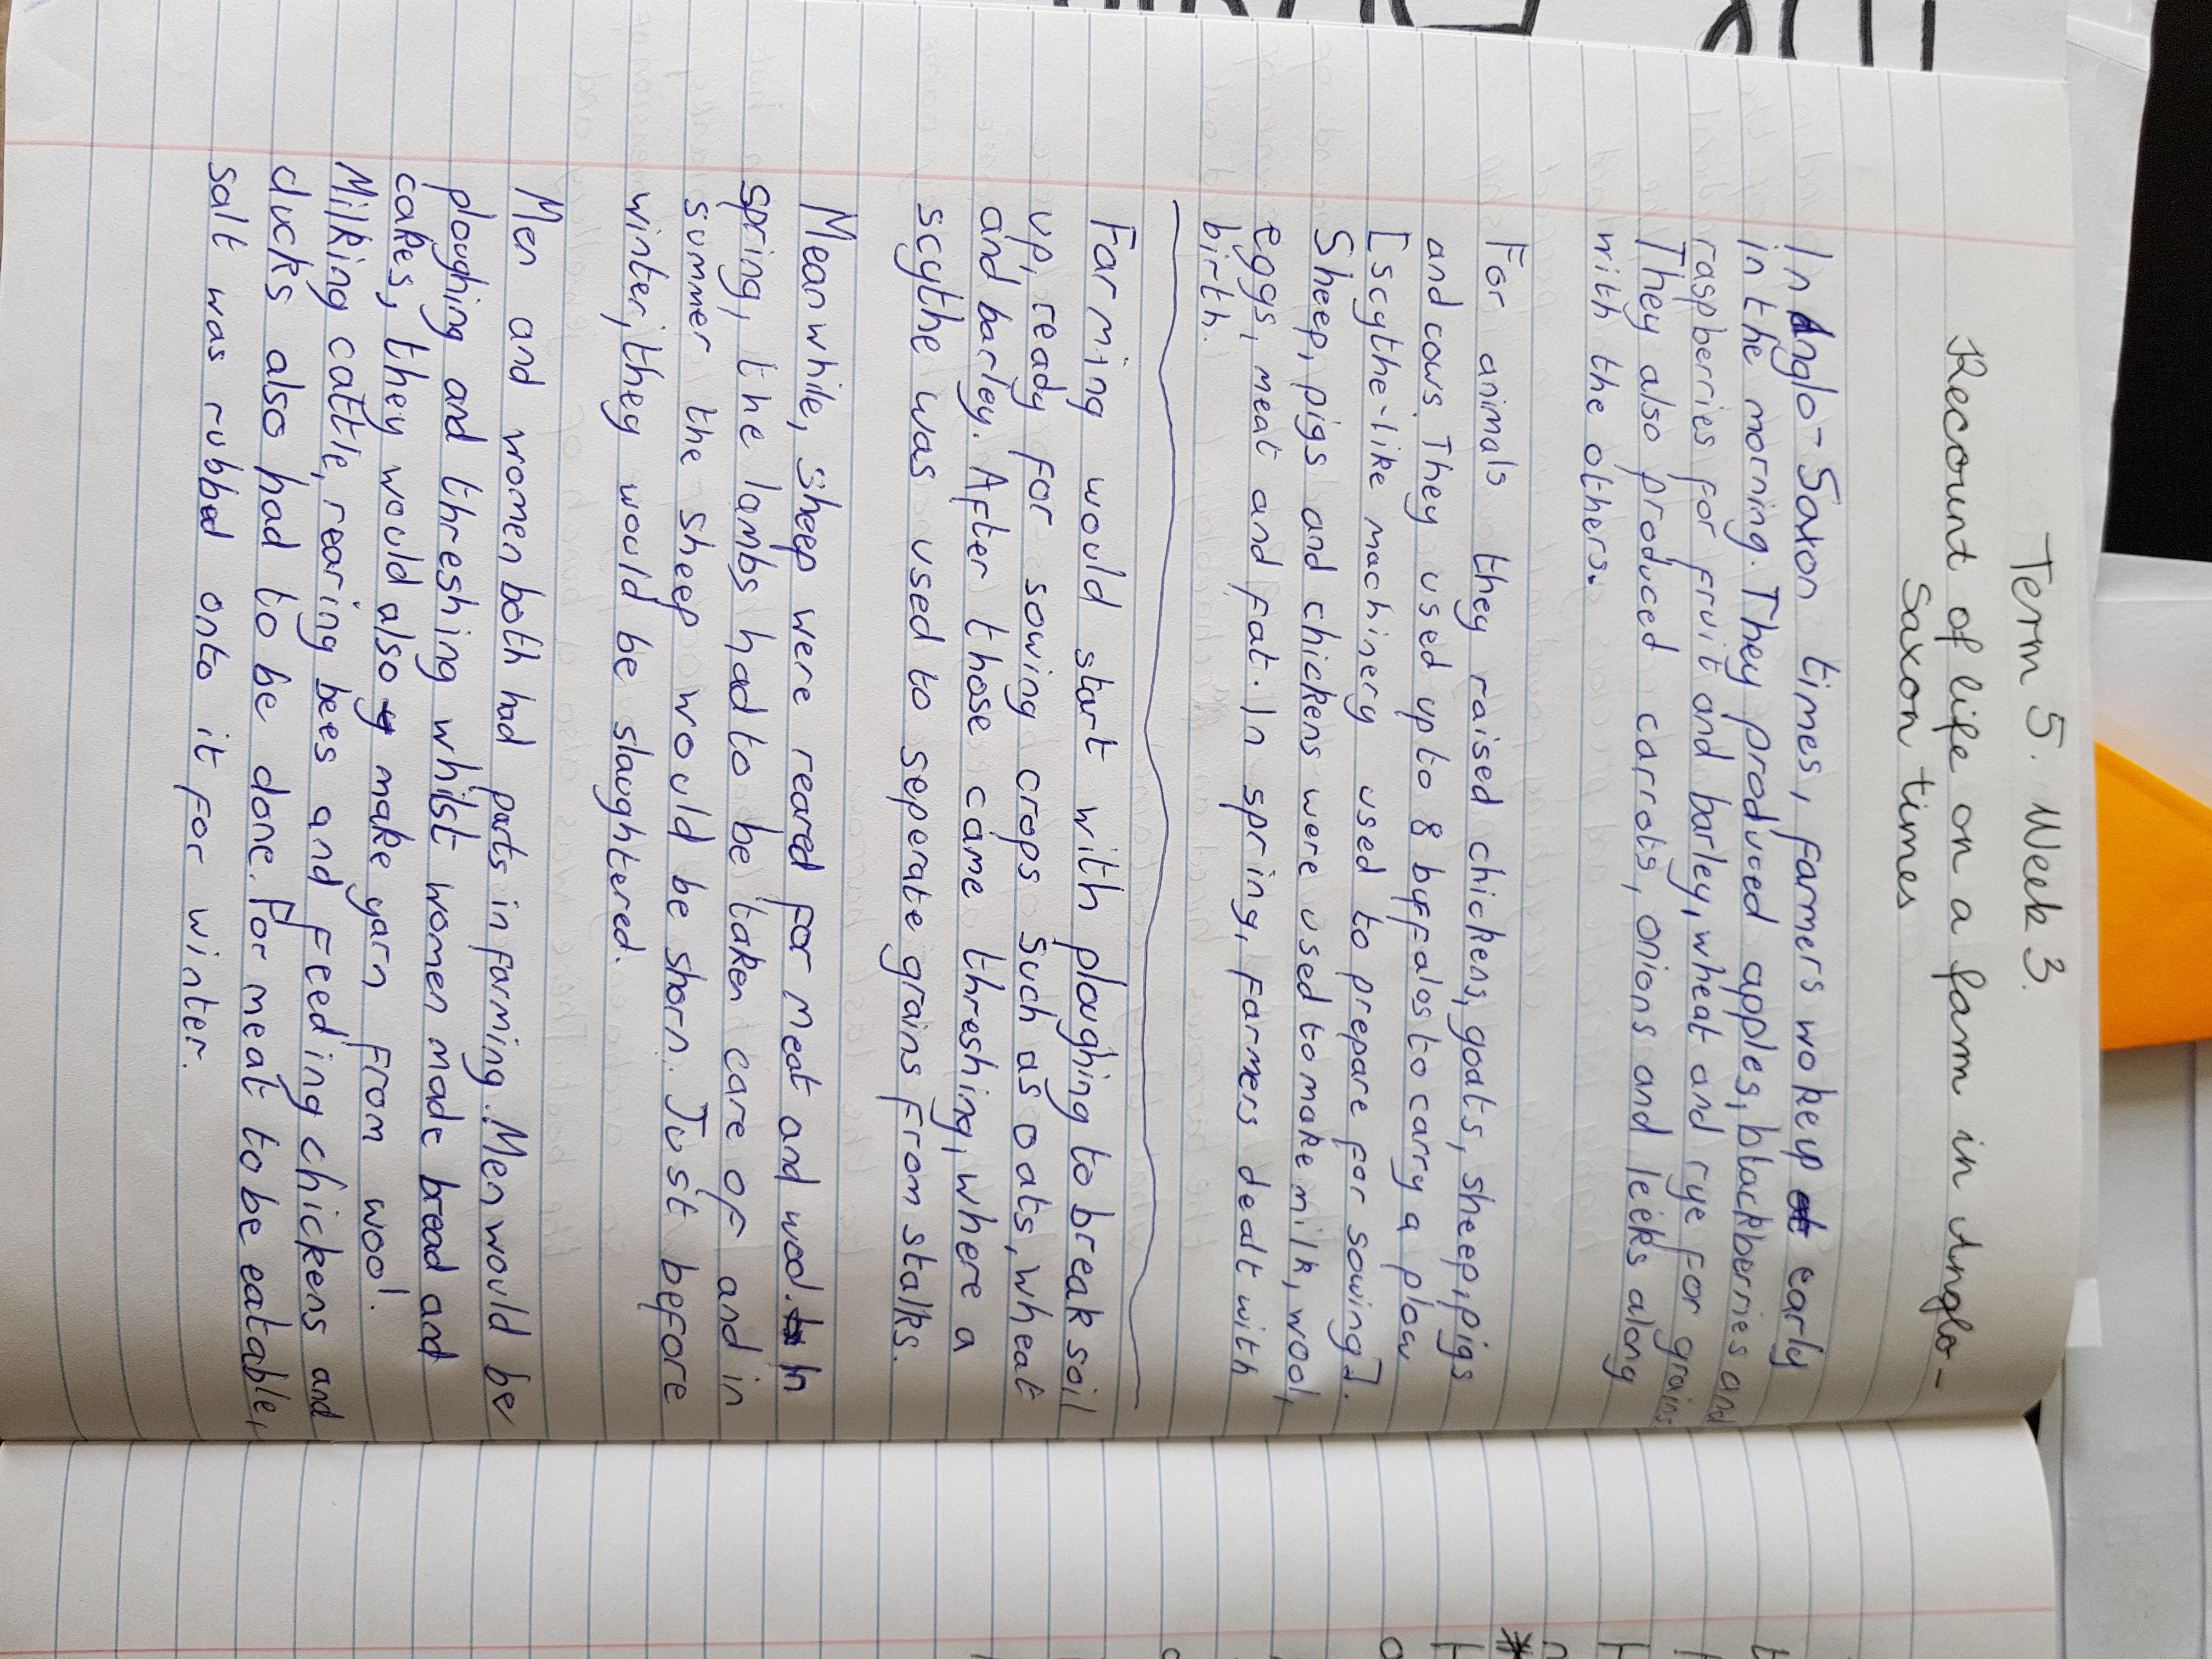 Term 5. Week 3.
Recount of life on a farm in Anglo-
Saxon times
In Anglo-Saxon times, farmers woke up early
in the morning. They produced apples, blackberries and
raspberries for fruit and barley, wheat and rye for grains
They also produced carrots, onions and leeks along
with the others.
For animals they raised chickens, goats, sheep, pigs
and cows. They used up to 8 buffalos to carry a plow
[scythe-like machinery used to prepare for sowing].
Sheep, pigs and chickens were used to make milk, wool,
eggs, meat and fat. In spring, farmers dealt with
birth.
Farming would start with ploughing to break soil
up, ready for sowing crops such as oats, wheat
and barley. After those came threshing, where a
scythe was used to seperate grains from stalks.
Meanwhile, sheep were reared for meat and wool. In
spring, the lambs had to be taken care of and in
summer the sheep would be shorn. Just before
winter, they would be slaughtered.
Men and women both had parts in farming. Men would be
ploughing and threshing whilst women made bread and
cakes, they would also make yarn from wool.
Milking cattle, rearing bees and feeding chickens and
ducks also had to be done. For meat to be eatable,
salt was rubbed onto it for winter.